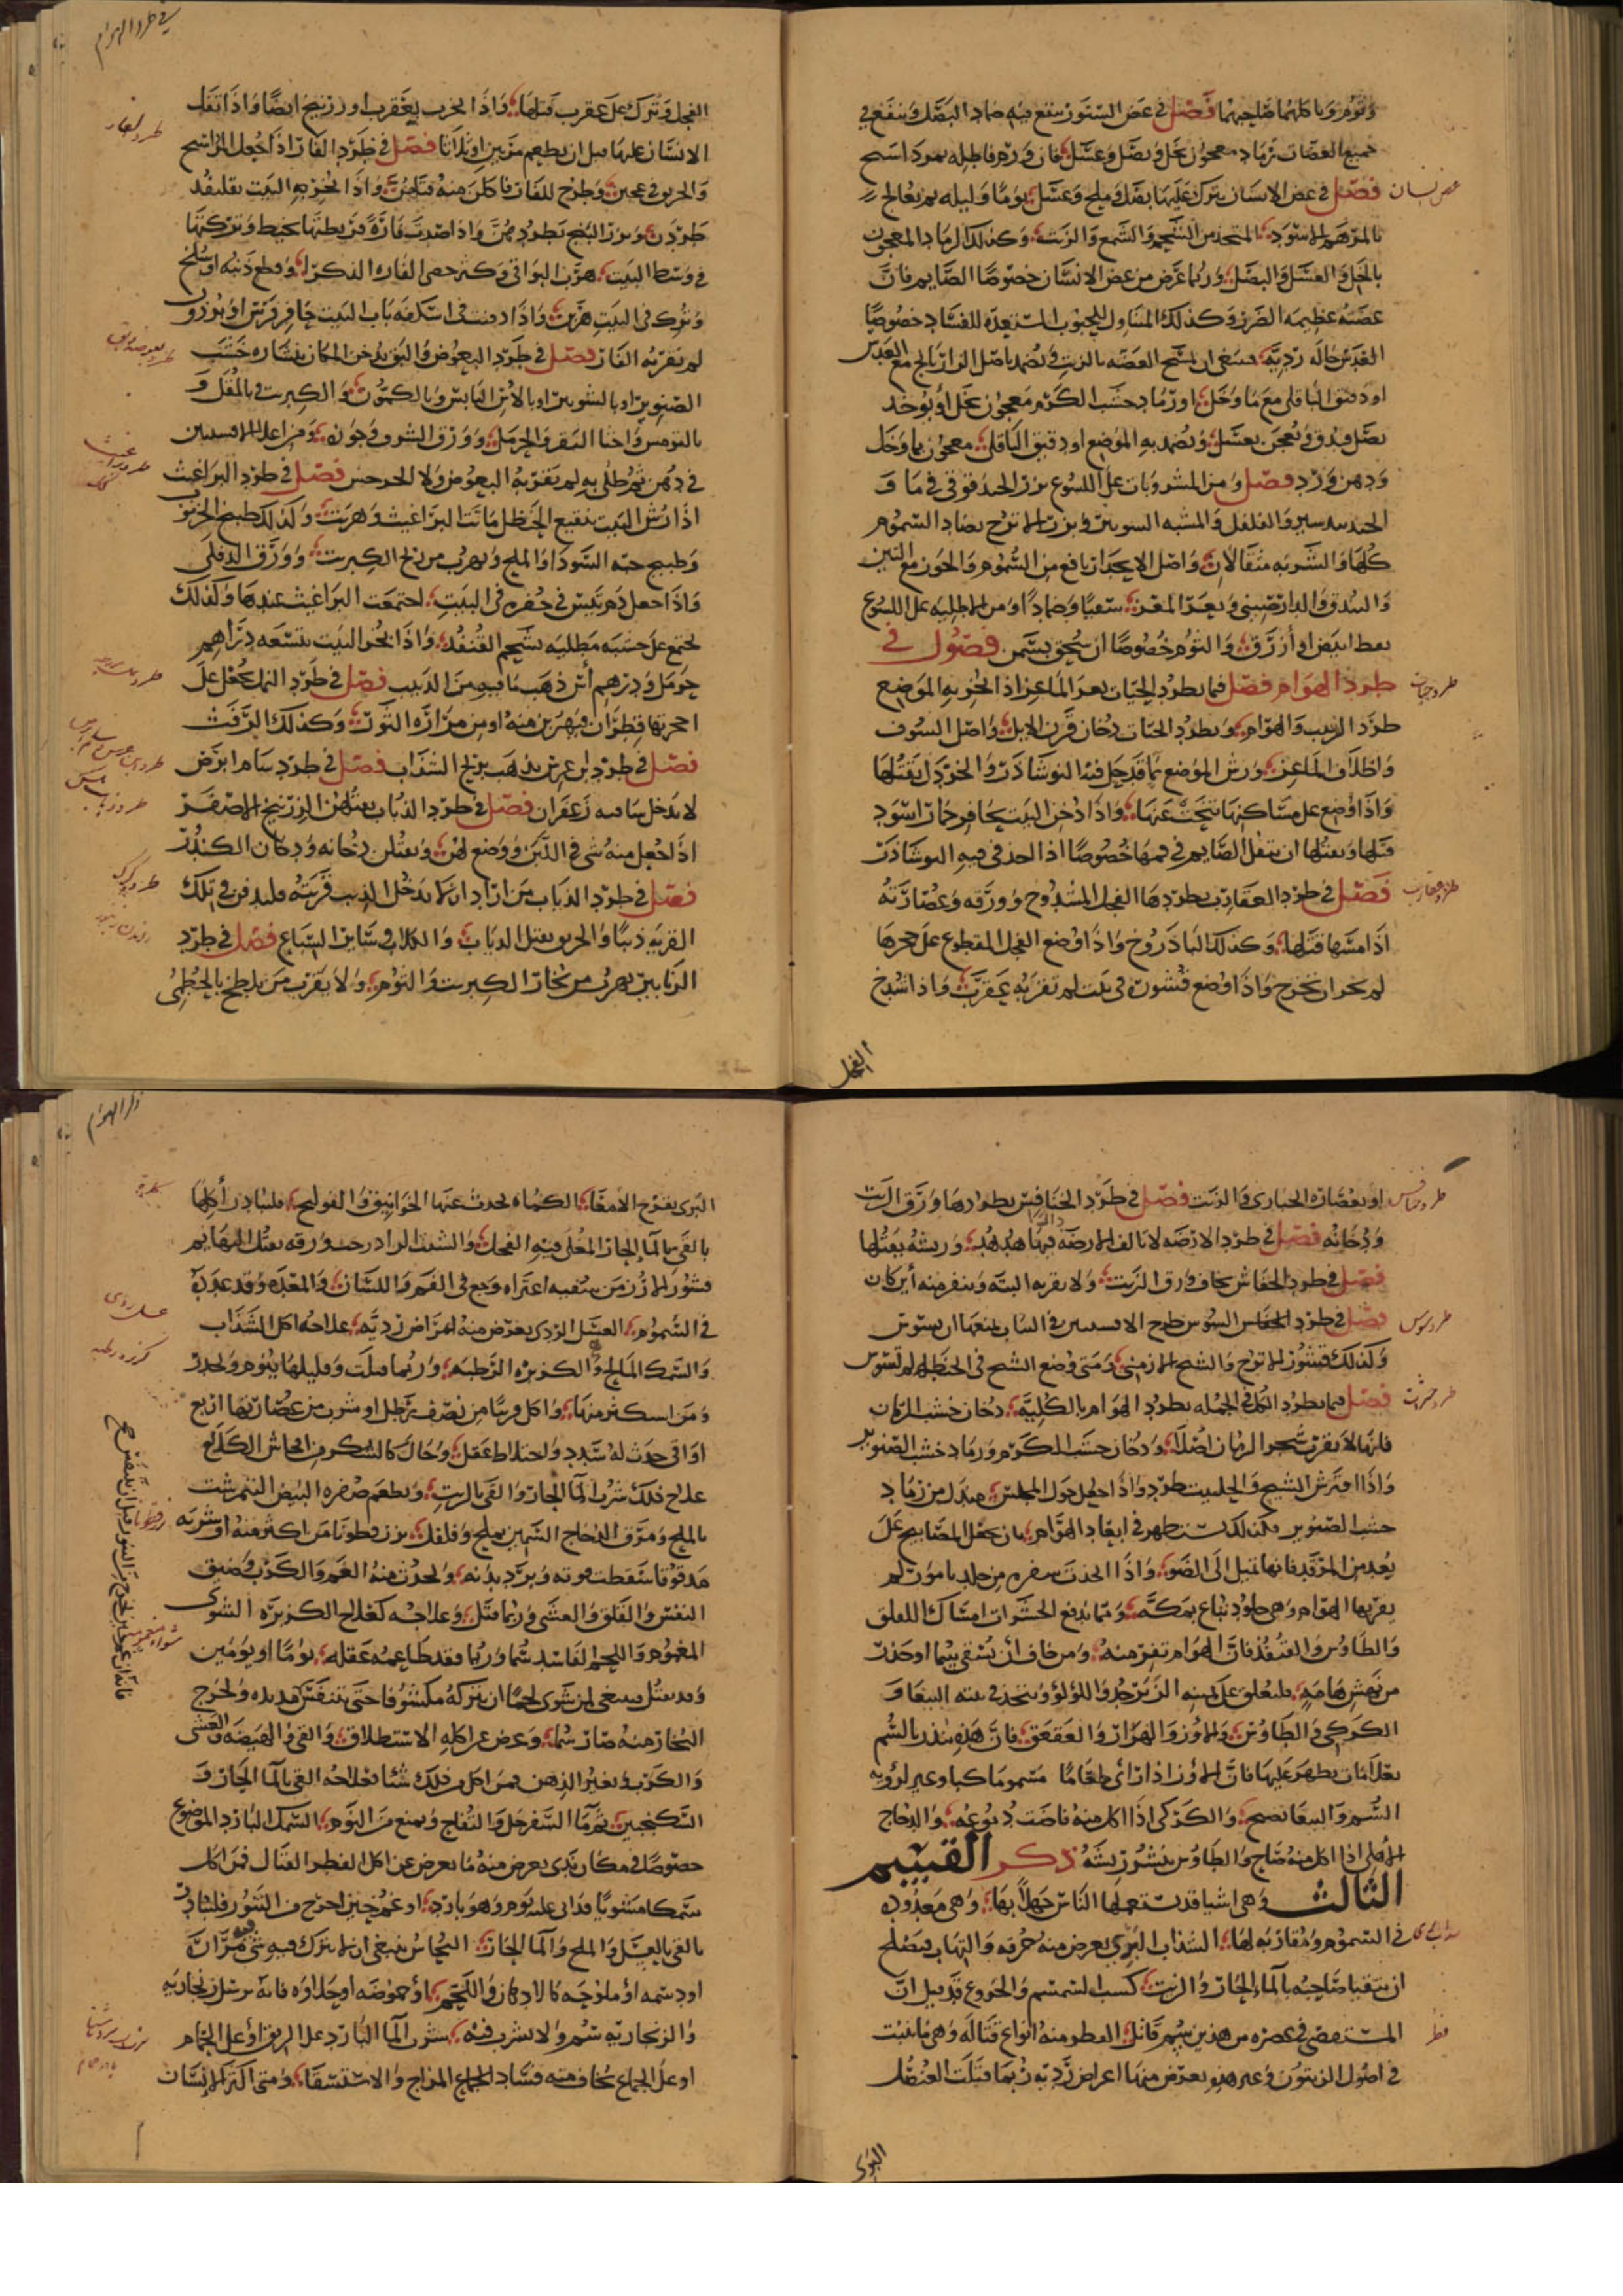 وثوم وبا كلهما صاحبهما فصل في عض السنور ينفع فيه ضماد البصل وينفع في
جميع العضات رماد معجون بخل وبصل وعسل فان ورم فاطله بمرداسنج
فصل في عض الانسان يترك عليها بصل وملح وعسل يوما وليله ثم يعالج
بالمرهم الاسود المتخذ من الشحم والشمع والزيت وكذلك الرماد المعجون
بالخل والعسل والبصل وربما عرض من عض الانسان خصوصا الصايم فان
عضته عظيمه الضرر وكذلك المتناول للحبوب المستعده للفساد خصوصا
العدس حاله رديه فينبغي ان تمسح العضه بالزيت وتضمد باصل الرازيانج مع العسل
او دقيق الباقلى مع ما وخل او رماد خشب الكرم معجون بخل او يوخذ
بصل فيدق ويعجن بعسل ويضمد به الموضع او دقيق الباقلى معجون بما وخل
ودهن ورد فصل ومن المشروبات على اللسوع بزر الحندقوقى في ما و
الجندبيدستر والفلفل والمشبه السوسن وبزر الاترج يضاد السموم
كلها والشربه مثقالان واصل الانجدان نافع من السموم والجوز مع التين
والبندق والدارصيني وبعر المعز سقيا وضمادا ومن الاطليه على اللسوع
نفط ابيض او أزرق والثوم خصوصا ان سحق بسمن فصول في
طرد الهوام فصل فيما يطرد الحيات بعر الماعز اذا بخر به الموضع
طرد الدبيب والهوام ويطرد الحيات دخان قرن الايل واصل السوسن
واظلاف الماعز ورش الموضع بما قد حل فيه النوشادر والخردل يقتلها
واذا وضع على مساكنها تنحت عنها واذا دخن البيت بحافر حمار اسود
قتلها ويقتلها ان يتفل الصايم في فمها خصوصا اذا اخذ في فيه النوشادر
فصل في طرد العقارب يطردها الفجل المشدوخ وورقه وعصارته
اذا مسها قتلها وكذلك الباذروج واذا وضع الفجل المقطوع على حجرها
لم تجسر ان تخرج واذا وضع قشوره في بيت لم تقربه عقرب واذا شدخ
الفجل
عض انسان
طرد حيات
طرد عقارب
في طرد الهوام
الفجل وترك على عقرب قتلها واذا بخرت بعقرب او زرنيخ ايضا واذا تفل
الانسان عليها قبل ان يطعم مرتين او ثلاثا فصل في طرد الفار اذا جعل المرداسنج
والخربق في عجين وطرح للفار فاكلن منه قتلهن واذا بخر به البيت بقلقند
طردن وبزر البنج يطردهن واذا صدت فارة فربطتها بخيط وتركتها
في وسط البيت هرب البواقي وكذلك خصى الفاره الذكر او قطع ذنبه او سلخ
وترك في البيت هربن واذا دفنت في اسكفه باب البيت حافر فرس او برذون
لم يقربه الفار فصل في طرد البعوض والبق يدخن المكان بنشاره خشب
الصنوبر او بالشونيز او بالآس اليابس وبالكمون والكبريت بالمقل و
بالترمس واخثا البقر والحرمل وورق السرو وجوزه ومن اعلا الافسنتين
في دهن ثم طلى به لم يقربه البعوض فصل في طرد البراغيث
اذا رش البيت بنقيع الحنظل ماتت البراغيث وهربت وكذلك طبيخ الخرنوب
وطبيخ حبه السودا والملح وتهرب من ريح الكبريت وورق الدفلى
واذا جعل دم تيس في حفره في البيت اجتمعت البراغيث عندها وكذلك
تجتمع على خشبه مطليه بشحم القنفذ واذا بخر البيت بتسعه دراهم
حرمل ودرهم أس ذهب ما فيه من الدبيب فصل في طرد النمل يجعل على
احجرتها قطران فيهربن منه او من مراره الثور وكذلك الزفت
فصل في طرد ابن عرس يذهب بريح السذاب فصل في طرد سام ابرص
لا يدخل بيتا فيه زعفران فصل في طرد الذباب يقتلهن الزرنيخ الاصفر
اذا جعل منه شي في اللبن ووضع لهن ويقتلن دخانه ودخان الكندر
فصل في طرد الذياب من اراد ان لا يدخل الذيب قريته فليدفن في تلك
القريه ذنبا والخربق يقتل الذياب والكلاب وساير السباع فصل في طرد
الزنابير تهرب من بخار الكبريت والثوم ولا يقرب من تلطخ بالخطمي
طرد الفار
او بعصاره الخبازى والزيت فصل في طرد الخنافس يطردها ورق الدلب
ودخانه فصل في طرد الارضه لا تالف الارضه فيها هدهد وريشه يقتلها
فصل في طرد الخفاش يخاف ورق الدلب ولا يقربه البته وينفر منه أين كان
فصل في طرد السوس طرح الافسنتين في الثياب يمنعها ان يسوس
وكذلك قشور الاترج والشيح الارمني ومتى وضع الشيح في الحنطه لم تسوس
فصل فيما يطرد الكل في الجمله يطرد الهوام بالكليه دخان خشب الرمان
فانها لا تقرب شجر الرمان اصلا ودخان خشب الكرم ورماد خشب الصنوبر
واذا افترش الشيح والحلتيت طرد واذا جعل حول المجلس مندل من رماد
خشب الصنوبر وكذلك يستظهر في ابعاد الهوام بان يجعل المصابيح على
بعد من المرقد فانها تميل الى الضو واذا اتخذت سفره من جلد بامور لم
يقربها الهوام وهي جلود تباع بمكه ومما يدفع الحشرات امساك اللقلق
والطاوس والقنفذ فان الهوام تفر منه ومن خاف أن يسقى سما او حذر
من نهش هامه فليعلق على كميه الزبرجد واللولو ويتخذ في بيته الببغا و
الكركي والطاوس والاوز والهزار والعقعق فان هذه تنذر بالسم
بعلامات يظهر عليها فان الاوز اذا رأى طعاما مسموما كبا وعبر لرؤيه
السم والببغا تصيح والكركى اذا اكل منه فاضت دموعه والدجاج
الاهلي اذا اكل منه صاح والطاوس ينشر ريشه ذكر القسم
الثالث وهي اشيا قد يستعملها الناس جهلا بها وهي معدوده
في السموم ومقاربه لها السذاب البري يعرض منه حرقه والتهاب فيصلح
ان يتقيا صاحبه بالماء الحار والزيت كسب السمسم والخروع قد قيل ان
المستقصى في عصره من هذين سم قاتل الفطر منه انواع قتاله وهي ما نبت
في اصول الزيتون وغير هذه يعرض منها اعراض رديه ربما قتلت العنصل
البرى
طرد خنافس
طرد سوس
طرد حشرات
فطر
البرى يقرح الامعا الكماه يحدث عنها الخوانيق والقولنج فليبادر أكلها
بالقي بالما الحار المغلى فيه الفجل والشبث
قشور الارز من سقيه اعتراه وجع في الفم واللسان والمعده وقد عدوه
في السموم العسل الردى يعرض منه امراض رديه علاجه اكل السذاب
والسمك المالح والكزبره الرطبه وربما قتلت وقليلها ينوم ويخدر
ومن استكثر منها واكل قريبا من نصف رطل او شرب من عصارتها اربع
اواقي حدث له سدد واختلاط عقل وحال كالسكر من افحاش الكلام
علاج ذلك شرب الما الحار والقي بالزيت ويطعم صفره البيض النيمرشت
بالملح ومرق الدجاج السمين بملح وفلفل بزر قطونا من اكثر منه او شربه
مدقوقا سقطت قوته وبرد بدنه ويحدث منه الغم والكرب وضيق
النفس والقلق والغشى وربما قتل وعلاجه كعلاج الكزبره الشوى
المغموم واللحم الفاسد سما وربما فقد طاعمه عقله يوما او يومين
وقد يقتل فينبغي لمن شوى لحما ان يتركه مكشوفا حتى يتنفس ويخرج
البخار منه صار سما وعرض عن اكله الاستطلاق والقي والهيضه والغشى
والكرب وتغير الذهن فمن اكل من ذلك شيا فعلاجه القي بالما الحار و
السكنجبين ثم ما السفرجل والتفاح ويمنع من النوم السمك البارد الموضوع
خصوصا في مكان ندى يعرض منه ما يعرض عن اكل الفطر القتال فمن اكل
سمكا مشويا قد اتى عليه يوم وهو بارد او غم حين اخرج من التنور فليبادر
بالقي بالعسل والملح والما الحار النحاس ينبغي ان لا يترك فيه شي فيه مراره
او دسمه او ملوحه كالادهان واللحم او حموضه او حلاوه فانه يرسل زنجاريته
والزنجاريه سم ولا يشرب فيه شرب الما البارد على الريق او على الحمام
او على الجماع يخاف منه فساد المزاج والاستسقا ومتى اكثر الانسان